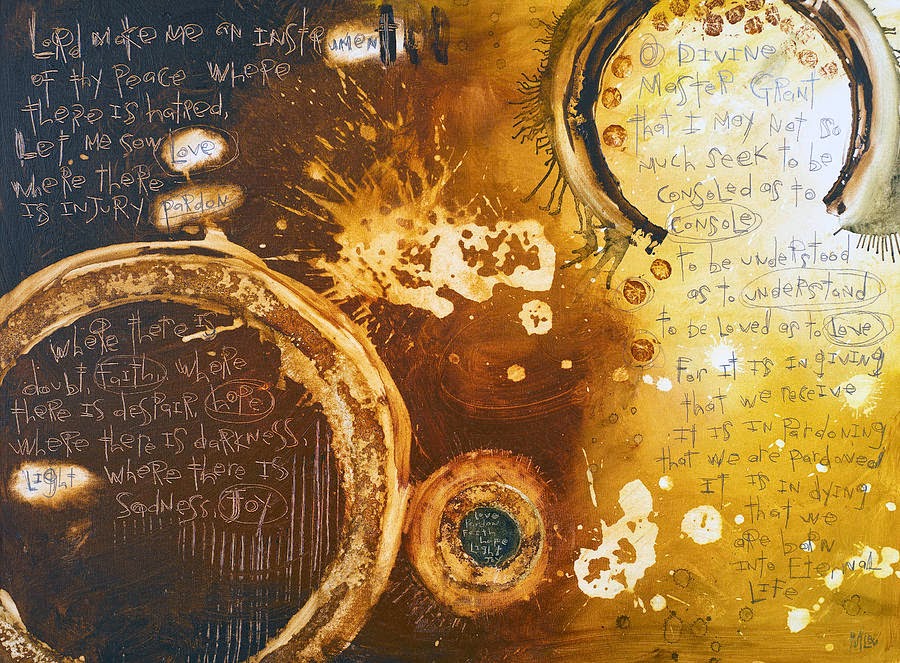 Lord make me an instrument
of thy peace where
there is hatred,
Let me sow Love
where there
is injury pardon
where there is
doubt, faith, where
there is despair, hope
where there is darkness,
Light where there is
Sadness, Joy
Love
Pardon
Faith
hope
Light
Joy
O Divine
Master Grant
that I may not so
much seek to be
consoled as to
console
to be understood
as to understand
to be loved as to Love
For it is in giving
that we receive
it is in pardoning
that we are pardoned
it is in dying
that we
are born
into Eternal
Life